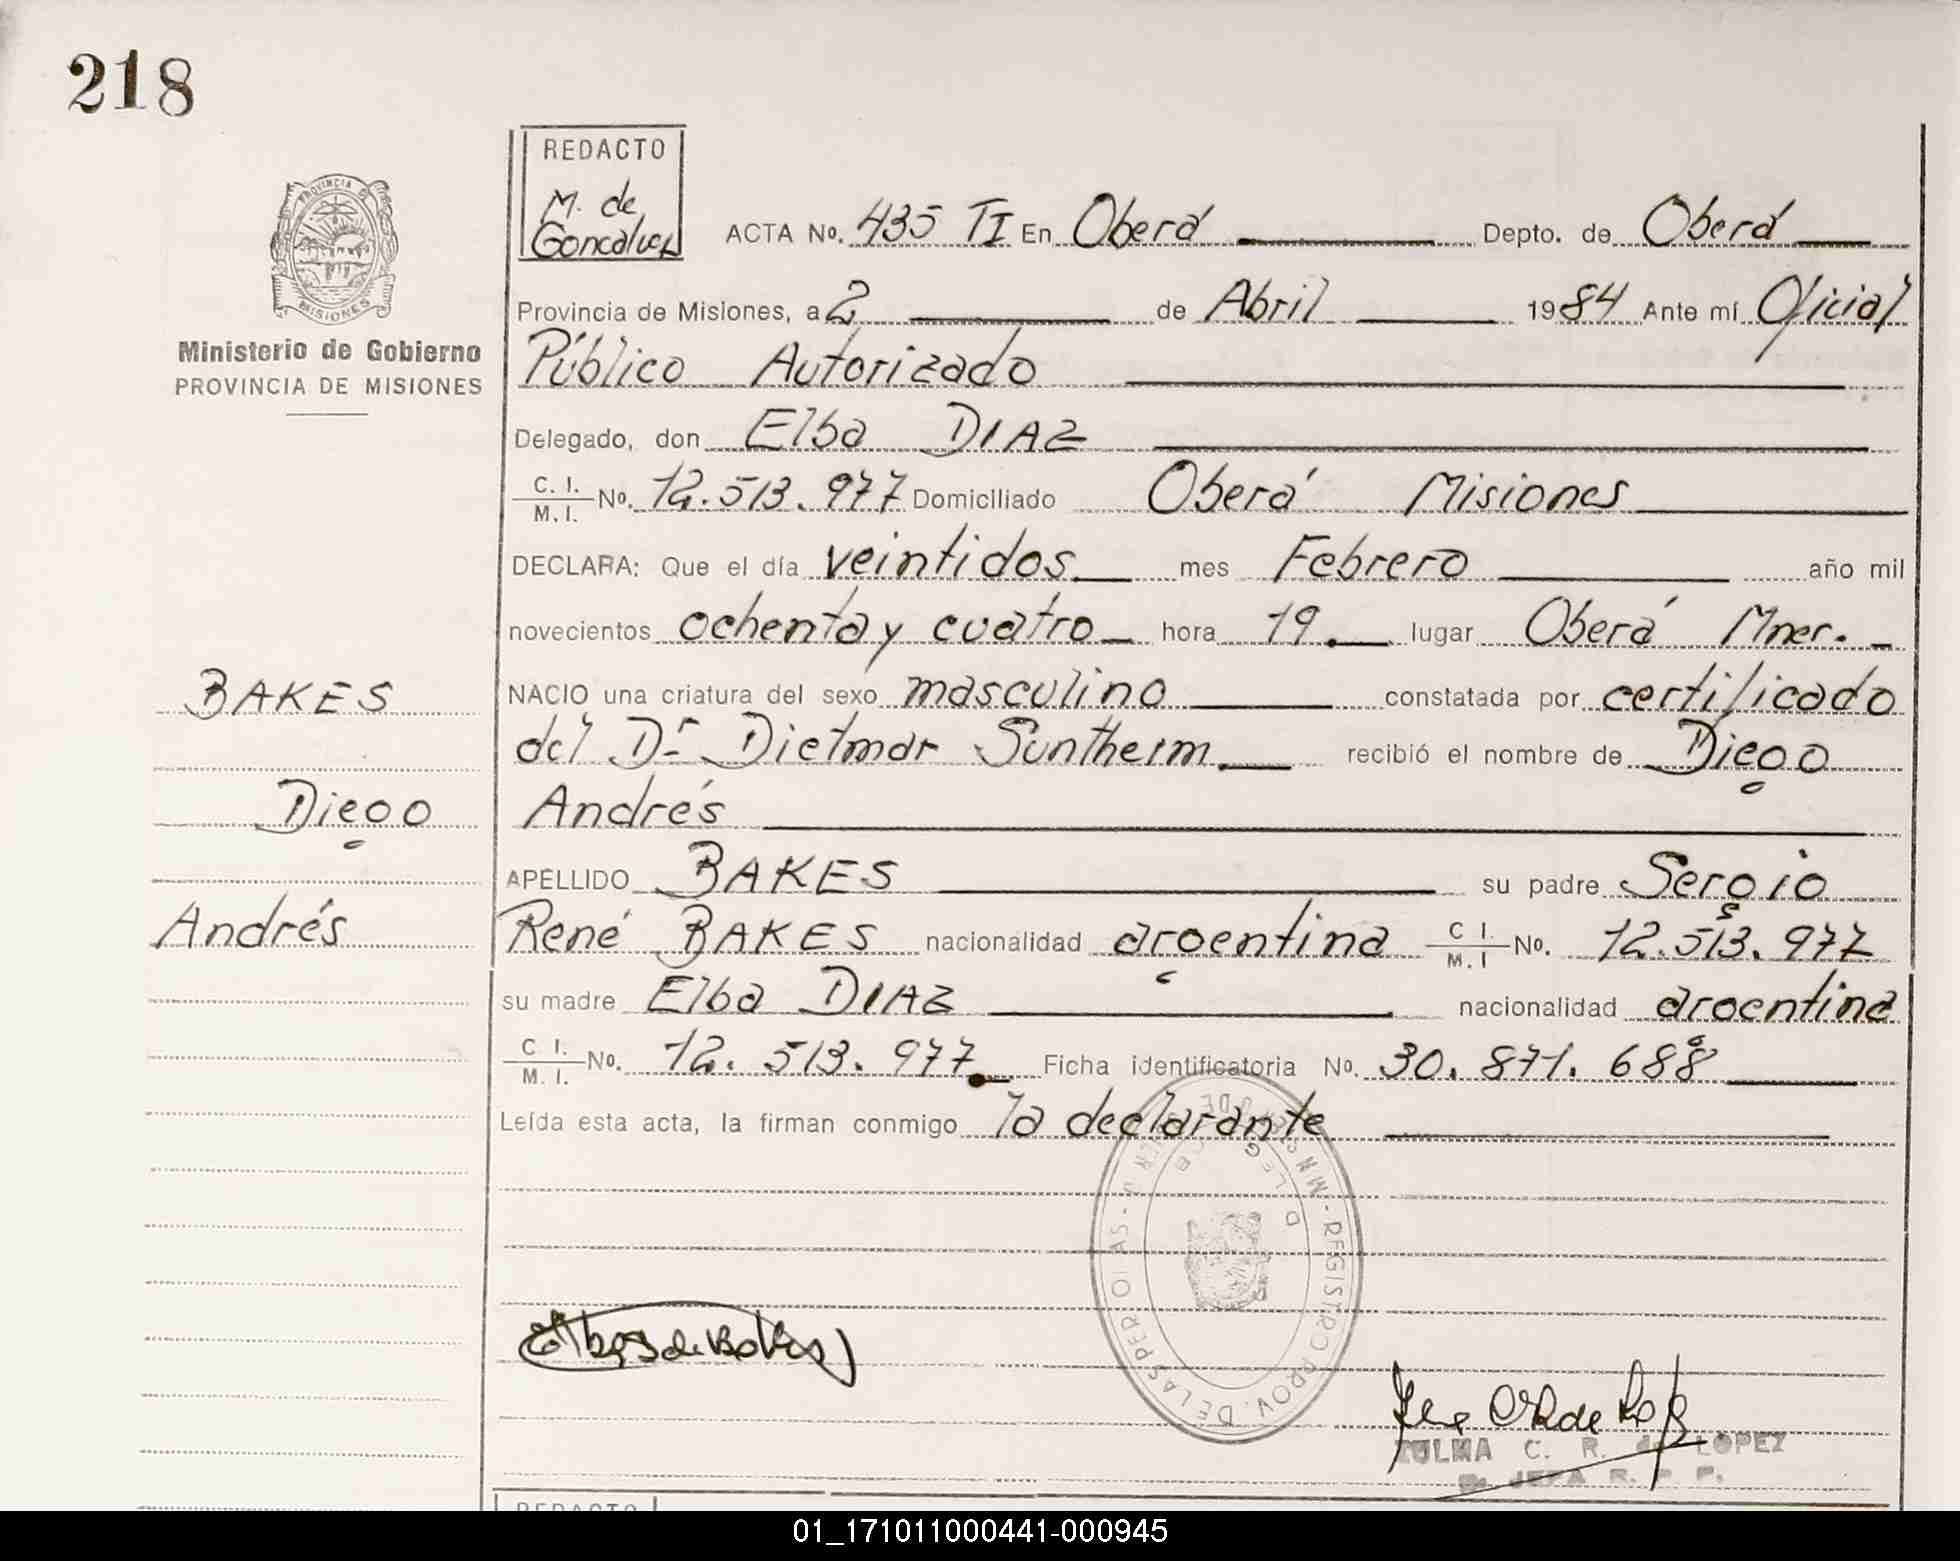 218
REDACTO
M. de
Goncalvez
PROVINCIA DE
MISIONES
Ministerio de Gobierno
PROVINCIA DE MISIONES
ACTA No. 435 TI En Oberá Depto. de Oberá
Provincia de Misiones, a 2 de Abril 1984 Ante mí Oficial
Público Autorizado
Delegado, don Elba DIAZ
C. I. / M. I. No. 12.513.977 Domiciliado Oberá Misiones
DECLARA: Que el día veintidos mes Febrero año mil
novecientos ochenta y cuatro hora 19. lugar Oberá Mnes.
BAKES
NACIO una criatura del sexo masculino constatada por certificado
del Dr Dietmar Suntheim recibió el nombre de Diego
Diego
Andrés
APELLIDO BAKES su padre Sergio
Andrés
René BAKES nacionalidad argentina C I. / M. I No. 12.513.977
su madre Elba DIAZ nacionalidad argentina
C I. / M. I. No. 12. 513. 977. Ficha identificatoria No. 30. 871. 688
Leída esta acta, la firman conmigo la declarante
REGISTRO PROV. DE LAS PERSONAS
ZULMA C. R. de LOPEZ
JEFA R. P. P.
REDACTO
01_171011000441-000945